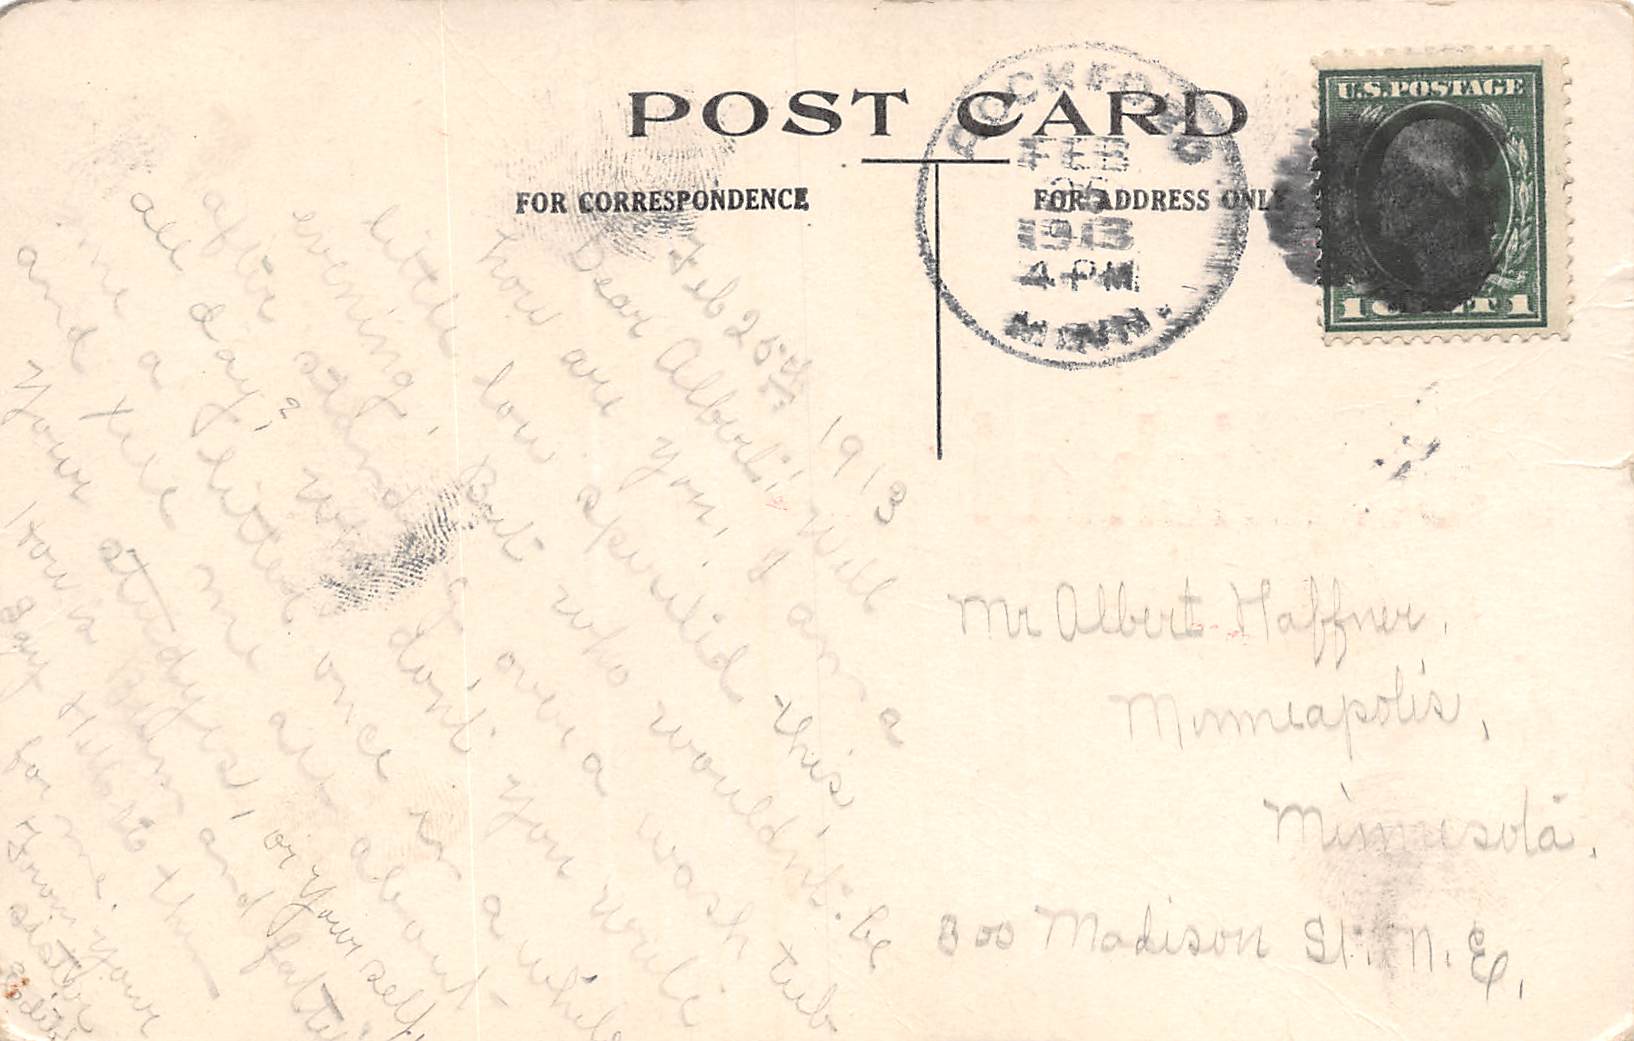 POST CARD
FOR CORRESPONDENCE
FOR ADDRESS ONLY
ROCKFORD
FEB
25
1913
4 PM
MINN.
U.S. POSTAGE
1 CENT 1
Feb 25th 1913
Dear Albert," Will
how are you, I am a
little low spirited this
evening, But who wouldn't be
after standing over a wash tub
all day? why don't you write
me a letter once in a while
and tell me all about
your studyes, or your self,
How's and fattie
Say Hello to them
for me.
From your
sister
Edith
Mr Albert Haffner,
Minneapolis,
Minnesota,
300 Madison St. N. E,